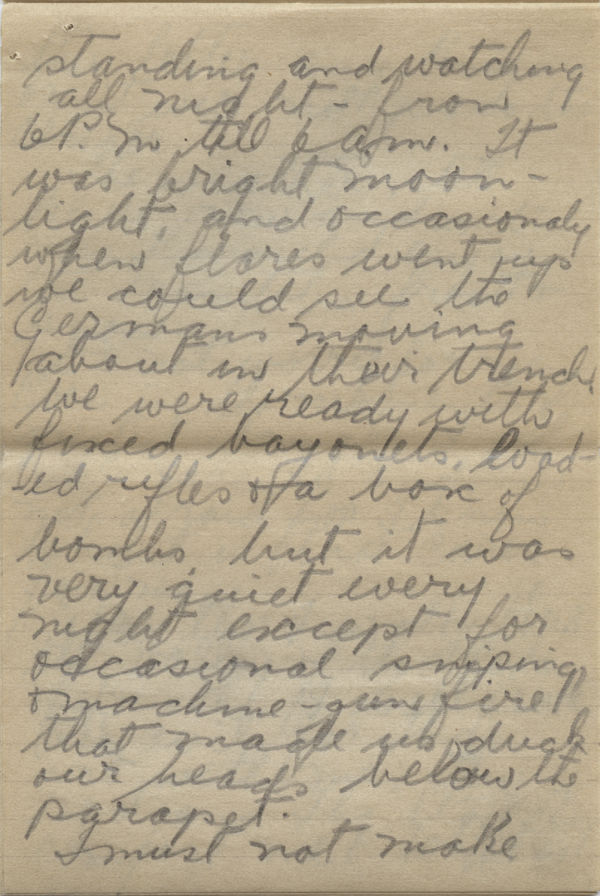 standing and watching
all night - from
6 P.m. till 6 a.m. It
was bright moon-
light, and occasionaly
when flares went up
we could see the
Germans moving
about in their trench.
We were ready with
fixed bayonets, load-
ed rifles & a box of
bombs, but it was
very quiet every
night except for
occasional sniping
& machine-gun fire
that made us duck
our heads below the
parapet.
I must not make